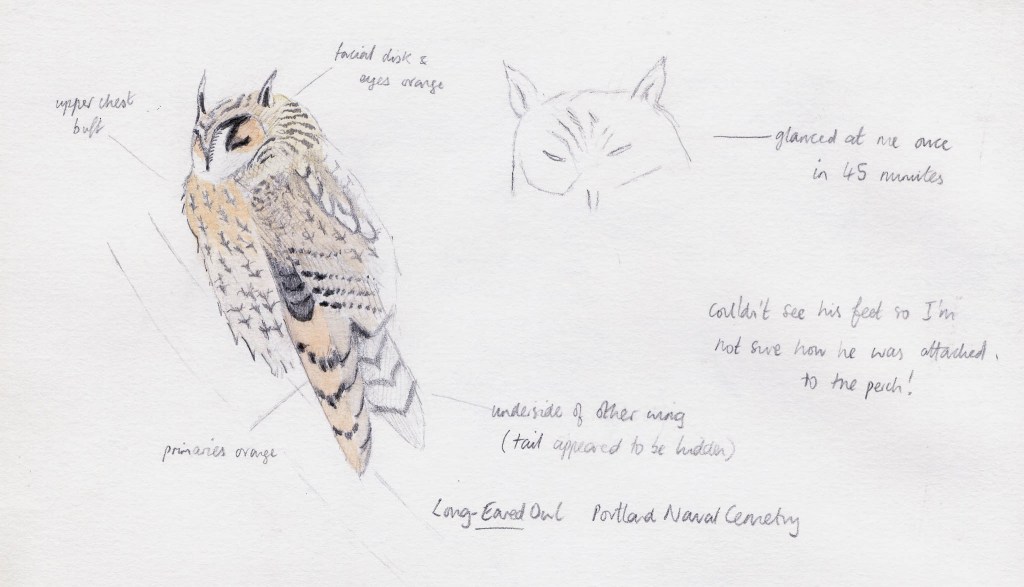 facial disk &
eyes orange
upper chest
buff
glanced at me once
in 45 minutes
couldn't see his feet so I'm
not sure how he was attached
to the perch!
underside of other wing
(tail appeared to be hidden)
primaries orange
Long-Eared Owl Portland Naval Cemetry